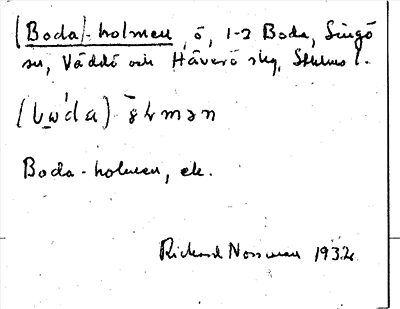 (Boda)-holmen, ö, 1-2 Boda, Singö
sn, Väddö och Häverö skg, Sthlms l.
Boda-holmen, ek.
Rickard Norrman 1932.